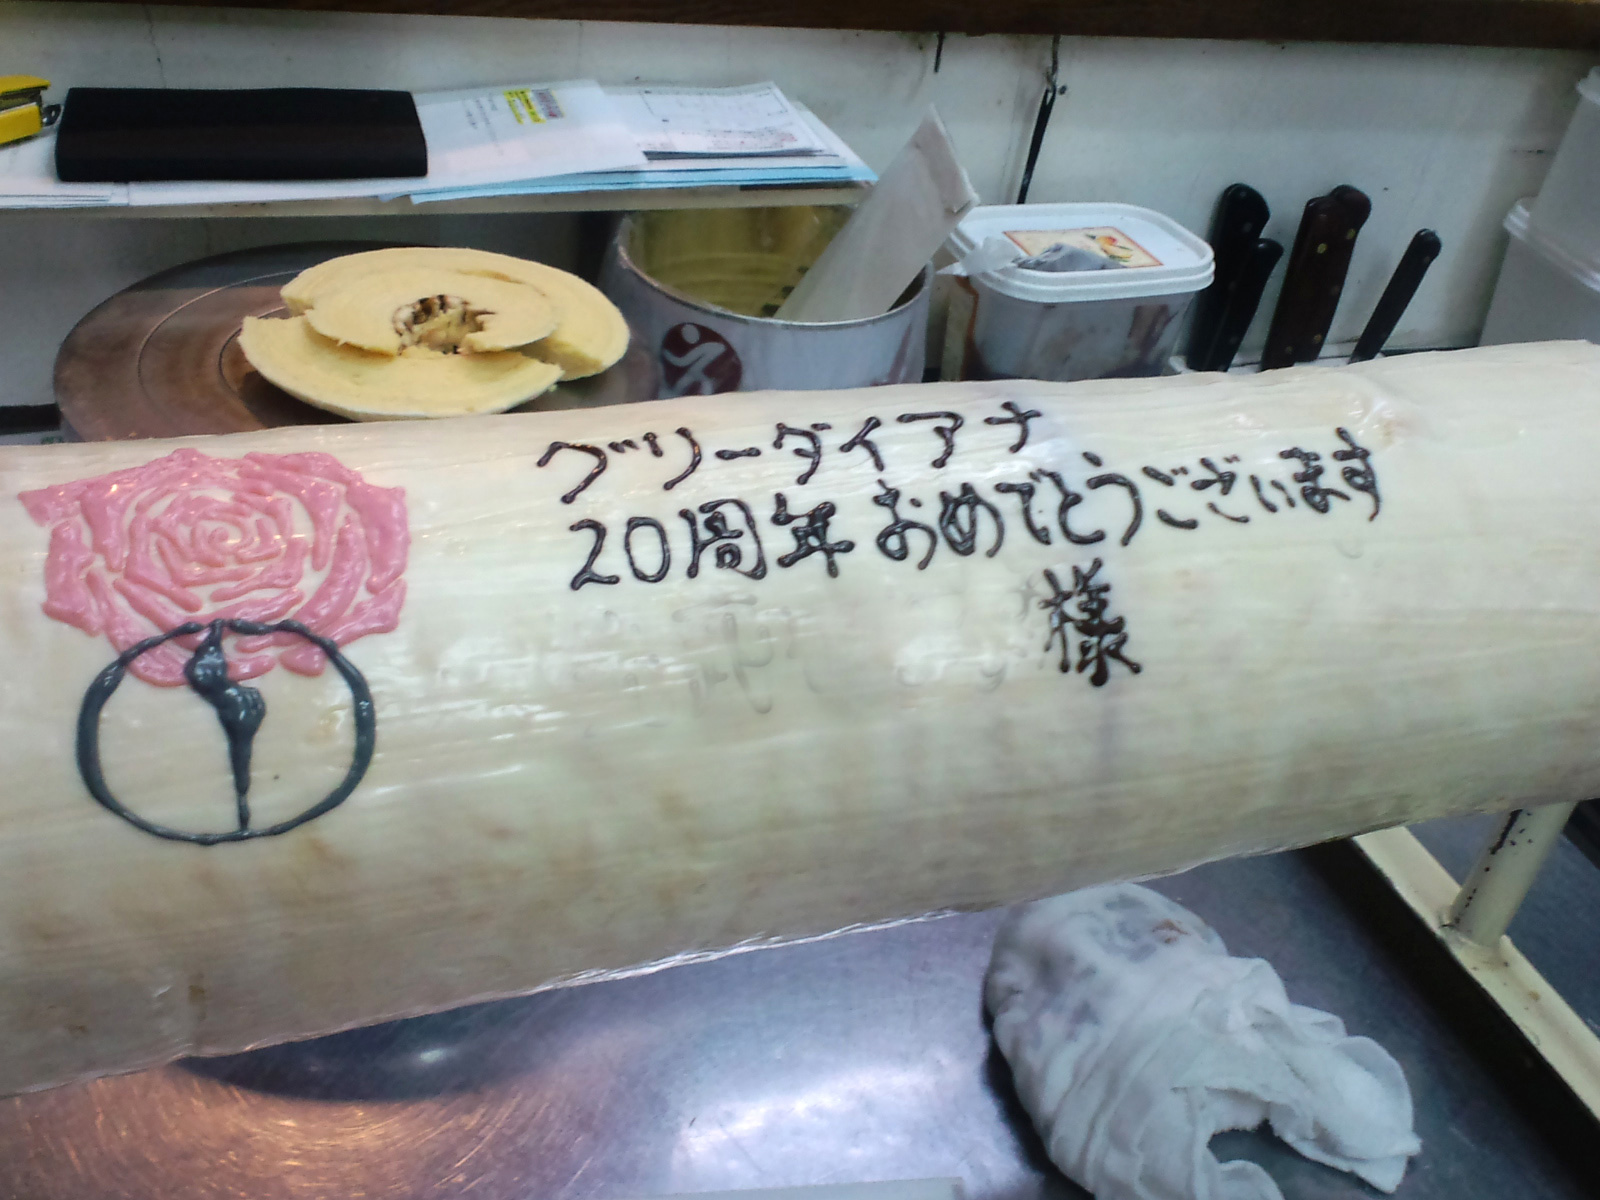 ベリーダイアナ
20周年おめでとうございます
様